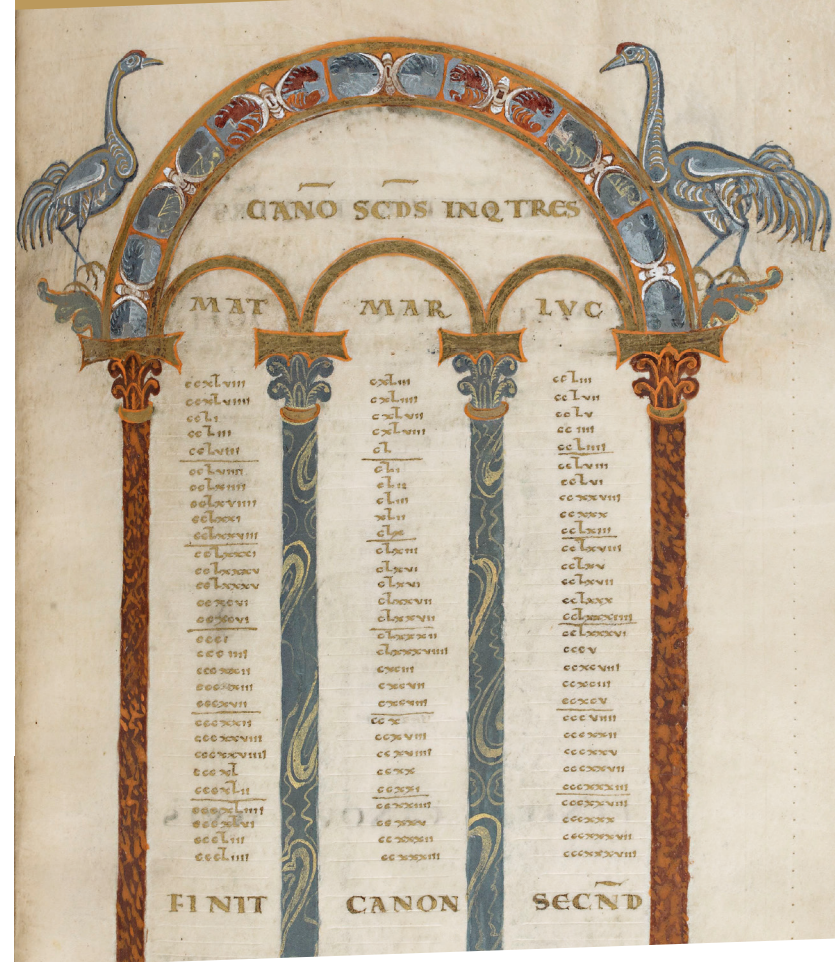 CANŌ SCD̄S INQ TRES
MAT MAR LVC
ccxlviii cxliii ccliii
ccxlviiii cxliiii cclvii
ccli cxlvii cclv
ccliii cxlviii cciiii
cclviii cl ccliiii
cclviiii cli cclviii
cclxiiii clii cclvi
cclxviiii cliii ccxxviiii
cclxxi xlii ccxxx
cclxxviii clx cclxiii
cclxxxi clxiii cclxviiii
cclxxxv clxvi cclxv
cclxxxv clxvi cclxvii
ccxcvi clxxvii cclxxx
ccxcvi clxxvii cclxxxiiii
ccci clxxxii cclxxxvi
ccciiii clxxxviiii cccv
cccxii cxciii ccxcviiii
cccxiii cxcvii ccxciii
cccxvii cxcviii ccxcv
cccxxii ccx cccviiii
cccxxviii ccxviii cccxxii
cccxxviiii ccxviiii cccxxv
cccxl ccxx cccxxvii
cccxlii ccxxi cccxxxiii
cccxliiii ccxxiiii cccxxviii
cccxlvi ccxxv cccxxx
cccliii ccxxxii cccxxxvii
cccliiii ccxxxiii cccxxxviii
FINIT CANON SECN̄D